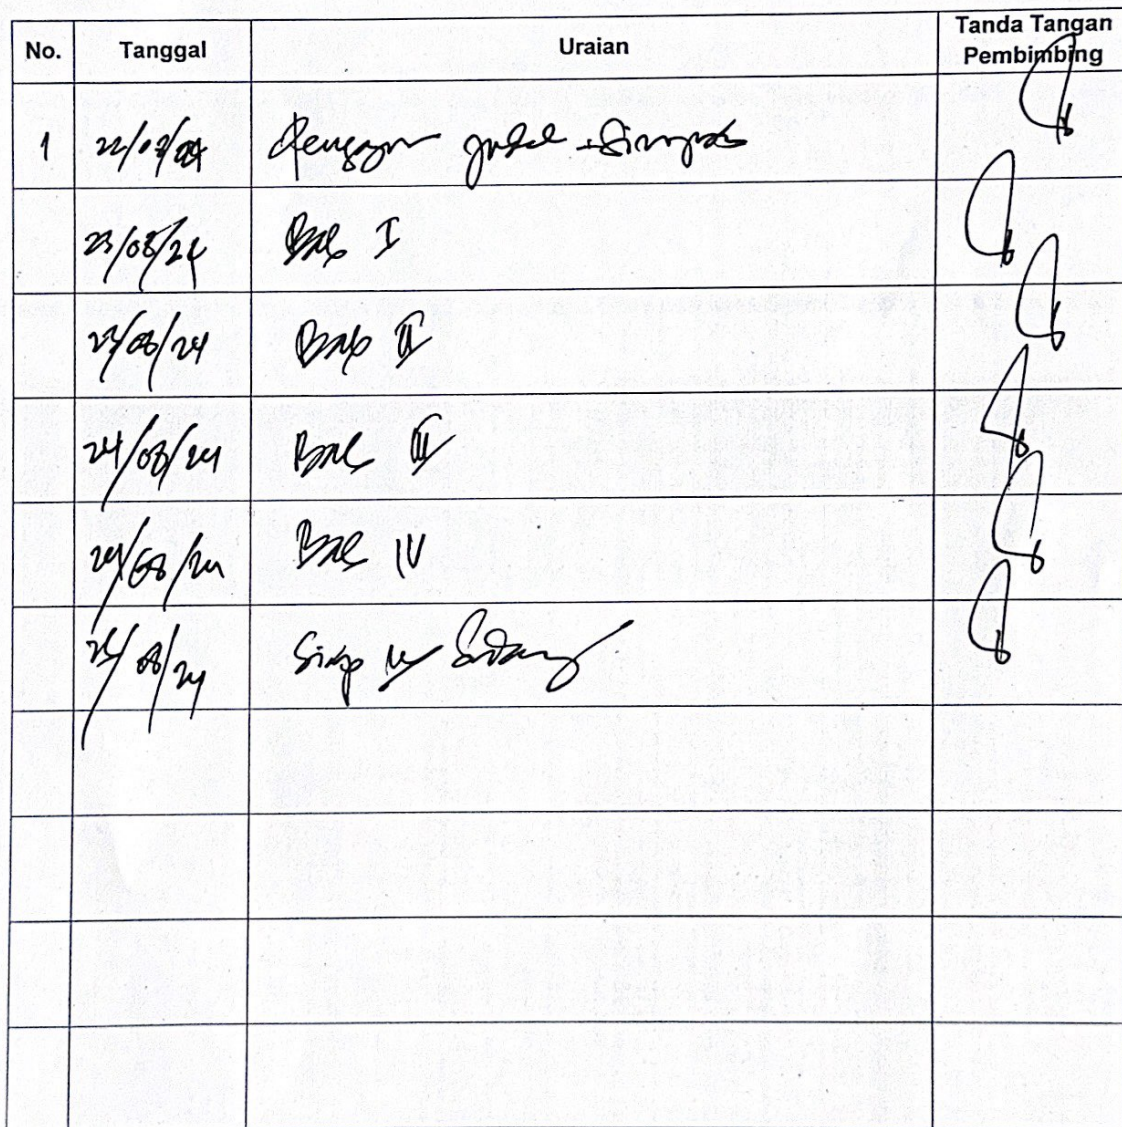 No. Tanggal Uraian Tanda Tangan Pembimbing
1 22/08/24 Pengajuan judul
23/08/24 Bab I
23/08/24 Bab II
24/08/24 Bab III
24/08/24 Bab IV
25/08/24 Siap Sidang